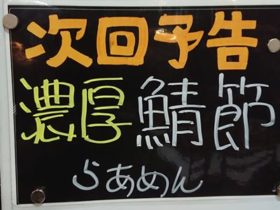 次回予告
濃厚鯖節
らあめん